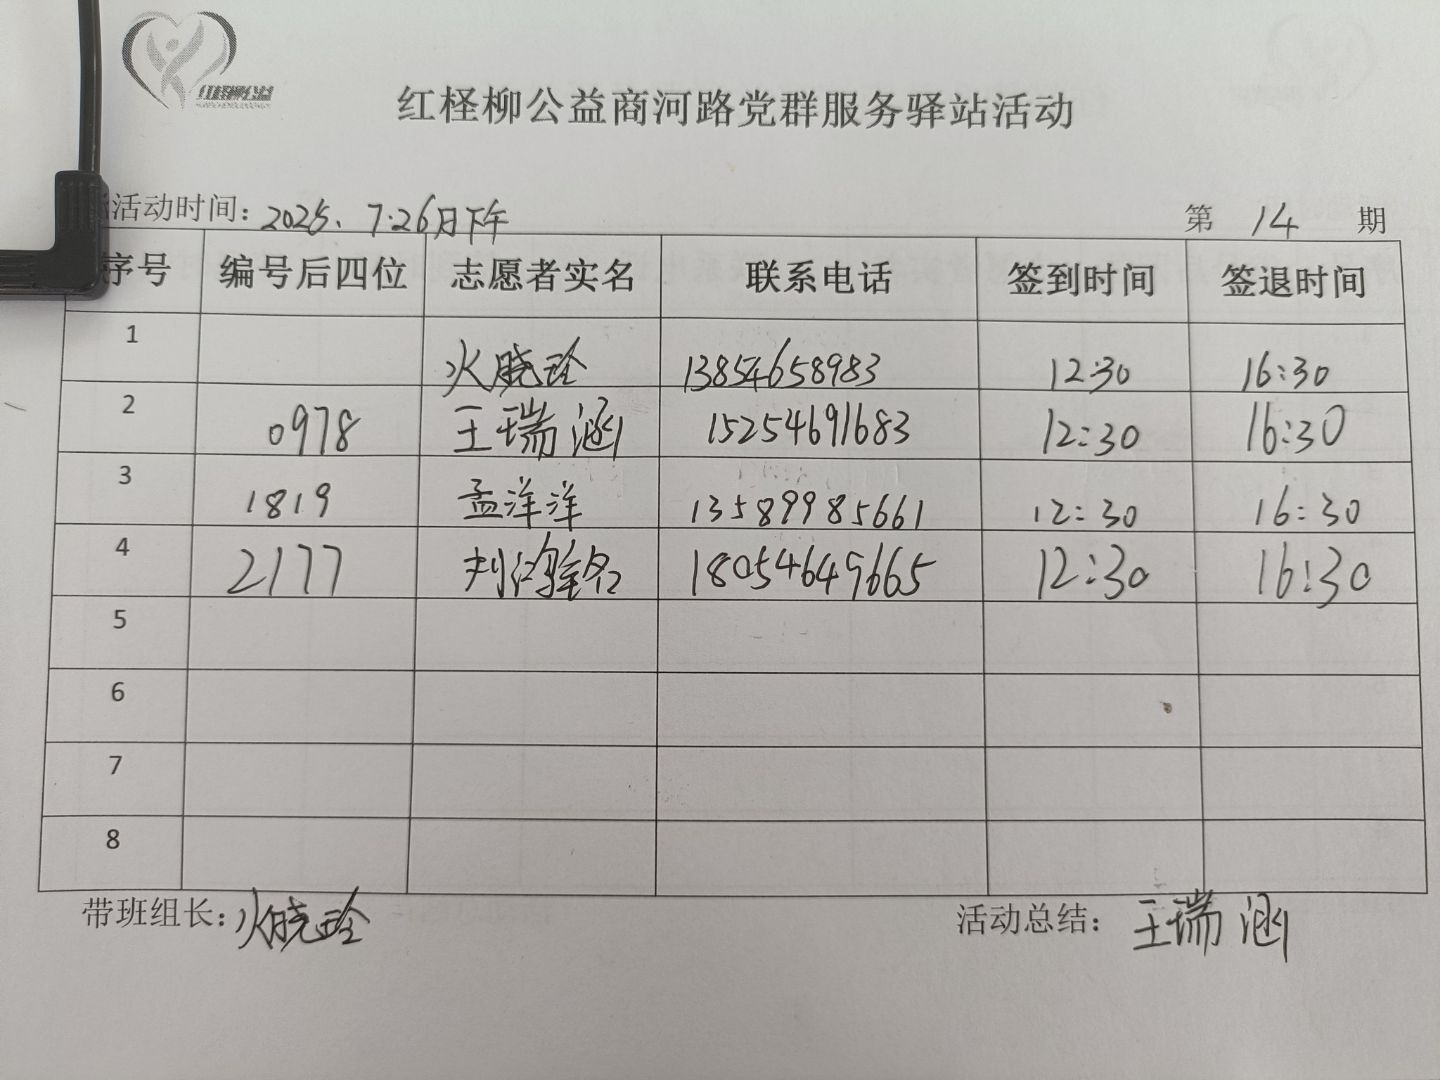 红柽柳公益
红柽柳公益商河路党群服务驿站活动
活动时间：2025、7.26日下午 第 14 期
序号 编号后四位 志愿者实名 联系电话 签到时间 签退时间
1 火晓玲 13854658983 12:30 16:30
2 0978 王瑞涵 15254691683 12:30 16:30
3 1819 孟洋洋 13589985661 12:30 16:30
4 2177 18054649665 12:30 16:30
5
6
7
8
带班组长：火晓玲 活动总结：王瑞涵